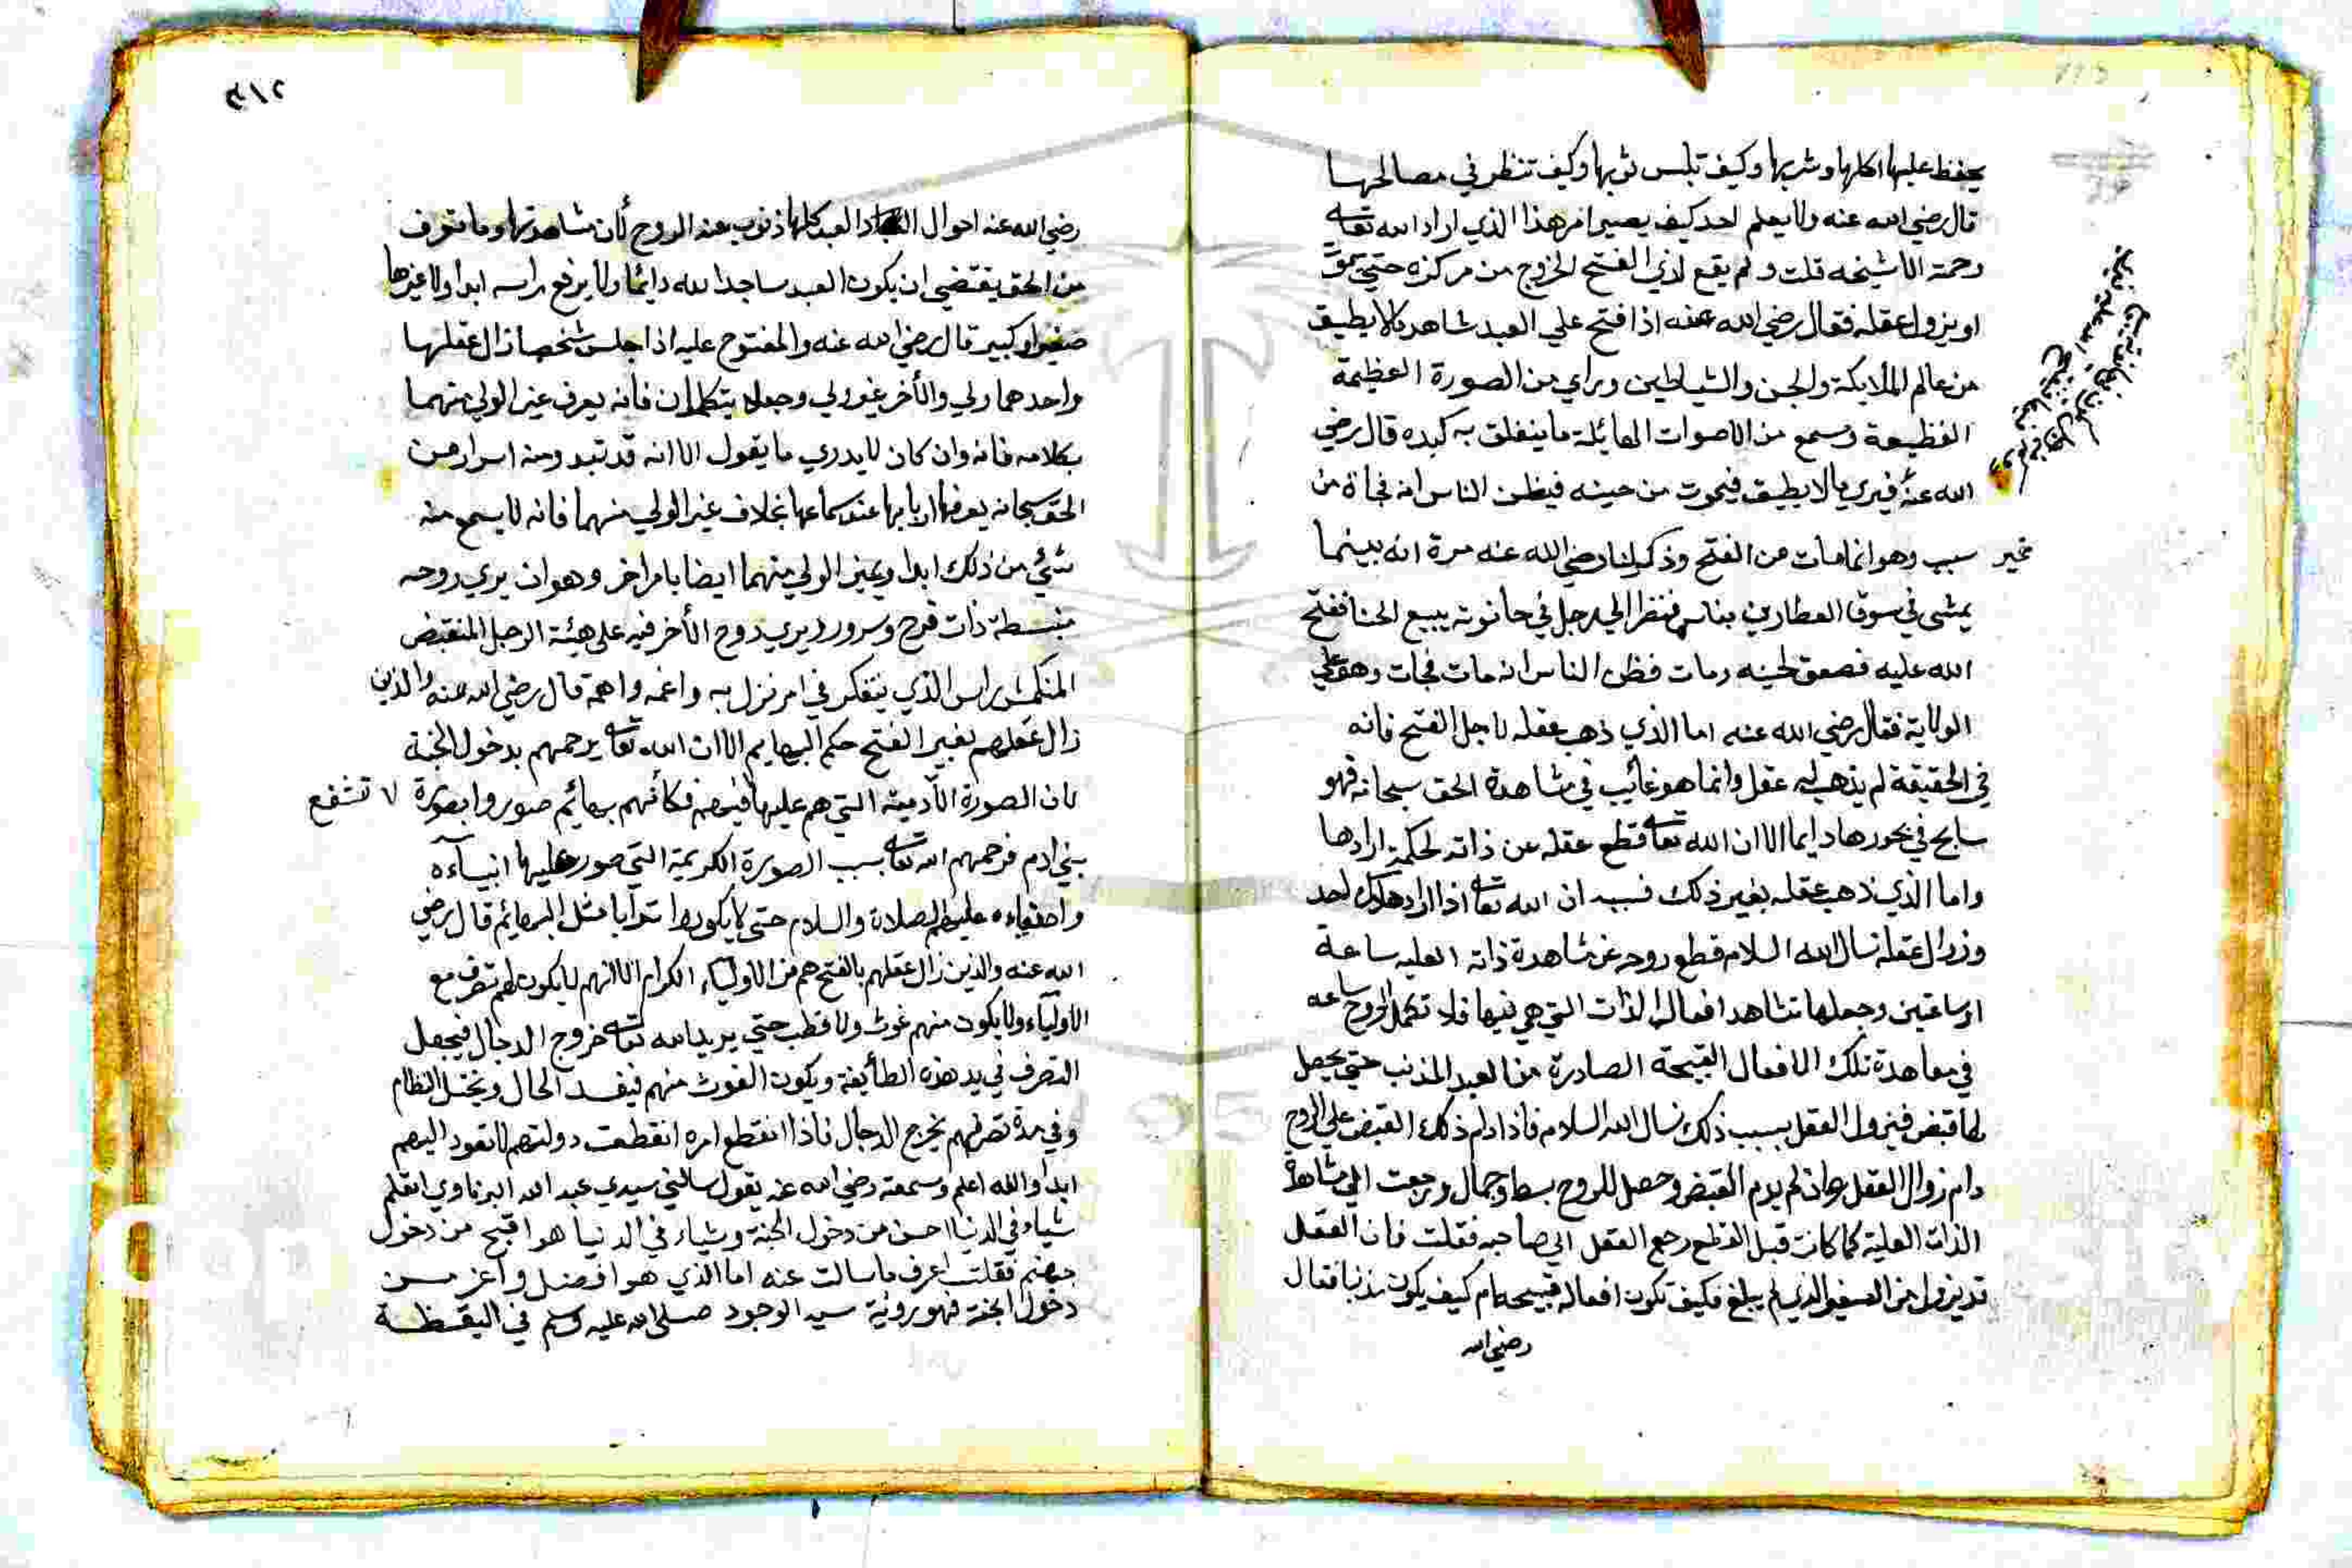 يحفظ عليها اكلها وشربها وكيف تلبس ثوبها وكيف تنظر في مصالحها
قال رضي الله عنه ولا يعلم احد كيف يصير امر هذا الذي اراد الله تعالى
رحمة الا شيخه قلت ولم يقع لذي الفتح الخروج من مركزه حتى يموت
او يزول عقله فقال رضي الله عنه اذا فتح علي العبد شاهد مالا يطيق
من عالم الملايكة والجن والشياطين وراي من الصورة العظيمة
الفظيعة وسمع من الاصوات الهائلة ما ينفلق به كبده قال رضي
الله عنه فيري مالا يطيق فيموت من حينه فيظن الناس انه فجاة من
غير سبب وهو انما مات من الفتح وذكر لنا رضي الله عنه مرة انه بينما
يمشى في سوق العطارين بفاس فنظر الي رجل في حانوته يبيع الحنا ففتح
الله عليه فصعق لحينه ومات فظن الناس انه مات فجات وهو علي
الولاية فقال رضي الله عنه اما الذي ذهب عقله لاجل الفتح فانه
في الحقيقة لم يذهب له عقل وانما هو غائب في مشاهدة الحق سبحانه فهو
سابح في بحورها دايما الا ان الله تعالى قطع عقله عن ذاته لحكمة ارادها
واما الذي ذهب عقله بغير ذلك فسببه ان الله تعالى اذا اراد هلاك احد
وزوال عقله نسال الله السلامه قطع روحه عن شاهدة ذاته العليه ساعة
او ساعتين وجعلها تشاهد افعال الذات التي هي فيها فلا تكمل الروح ساعه
في معاهدة تلك الافعال القبيحة الصادرة من العبد المذنب حتي يحصل
لها قبض فيزول العقل بسبب ذلك نسال الله السلامه فاذا دام ذلك القبض علي الروح
دام زوال العقل وان لم يدم القبض وحصل للروح بسط وجمال ورجعت الي مشاهدة
الذات العلية كما كانت قبل القطع رجع العقل الي صاحبه فقلت فان العقل
قد يزول من الصغير الذي لم يبلغ فكيف تكون افعاله قبيحه ام كيف يكون مذنبا فقال
رضي الله
٢١٣
رضي الله عنه احوال العبد كلها ذنوب عند الروح لأن مشاهدتها وما تعرف
من الحق يقتضي ان يكون العبد ساجدا لله دايما ولا يرفع راسه ابدا ولا غيرها
صغير او كبير قال رضي الله عنه والمفتوح عليه اذا جلس شخصان زال عقلهما
واحدهما ولي والأخر غير ولي وجعلا يتكلمان فانه يعرف غير الولي منهما
بكلامه فانه وان كان لا يدري ما يقول الا انه قد تبدو منه اسرار من
الحق سبحانه يعرفها اربابها عند سماعها بخلاف غير الولي منهما فانه لا يسمع منه
شئ من ذلك ابدا ويميز الولي منهما ايضا بامر اخر وهو ان يري روحه
منبسطة ذات فرح وسرور ويري روح الأخر فيه على هيئة الرجل المنقبض
المنكمش راس الذي يتفكر في امر نزل به واغمه واهمه قال رضي الله عنه والذين
زال عقلهم بغير الفتح حكم البهايم الا ان الله تعالى يرحمهم بدخول الجنة
لان الصورة الآدمية التي هم عليها فكأنهم بهائم صوروا بصورة لا تشفع
بني ادم فرحمهم الله تعالى بسبب الصورة الكريمة التي صور عليها انبيآءه
واصفياءه عليهم الصلاة والسلام حتى لا يكونوا ترابا مثل البهائم قال رضي
الله عنه والذين زال عقلهم بالفتح هم من الاولياء الكرام الا انهم لا يكون لهم تصرف مع
الاولياء ولا يكون منهم غوث ولا قطب حتي يريد الله تعالى خروج الدجال فيجعل
التصرف في يد هذه الطائيفة ويكون الغوث منهم فيفسد الحال ويختل النظام
وفي مدة تصرفهم يخرج الدجال فاذا انقطع امره انقطعت دولتهم لا تعود اليهم
ابدا والله اعلم وسمعته رضي الله عنه يقول سالني سيدي عبد الله البرناوي اتعلم
شياء في الدنيا احسن من دخول الجنة وشياء في الدنيا هو اقبح من دخول
جهنم فقلت اعرف ما سالت عنه اما الذي هو افضل واعز من
دخول الجنة فهو روية سيد الوجود صلى الله عليه وسلم في اليقظة